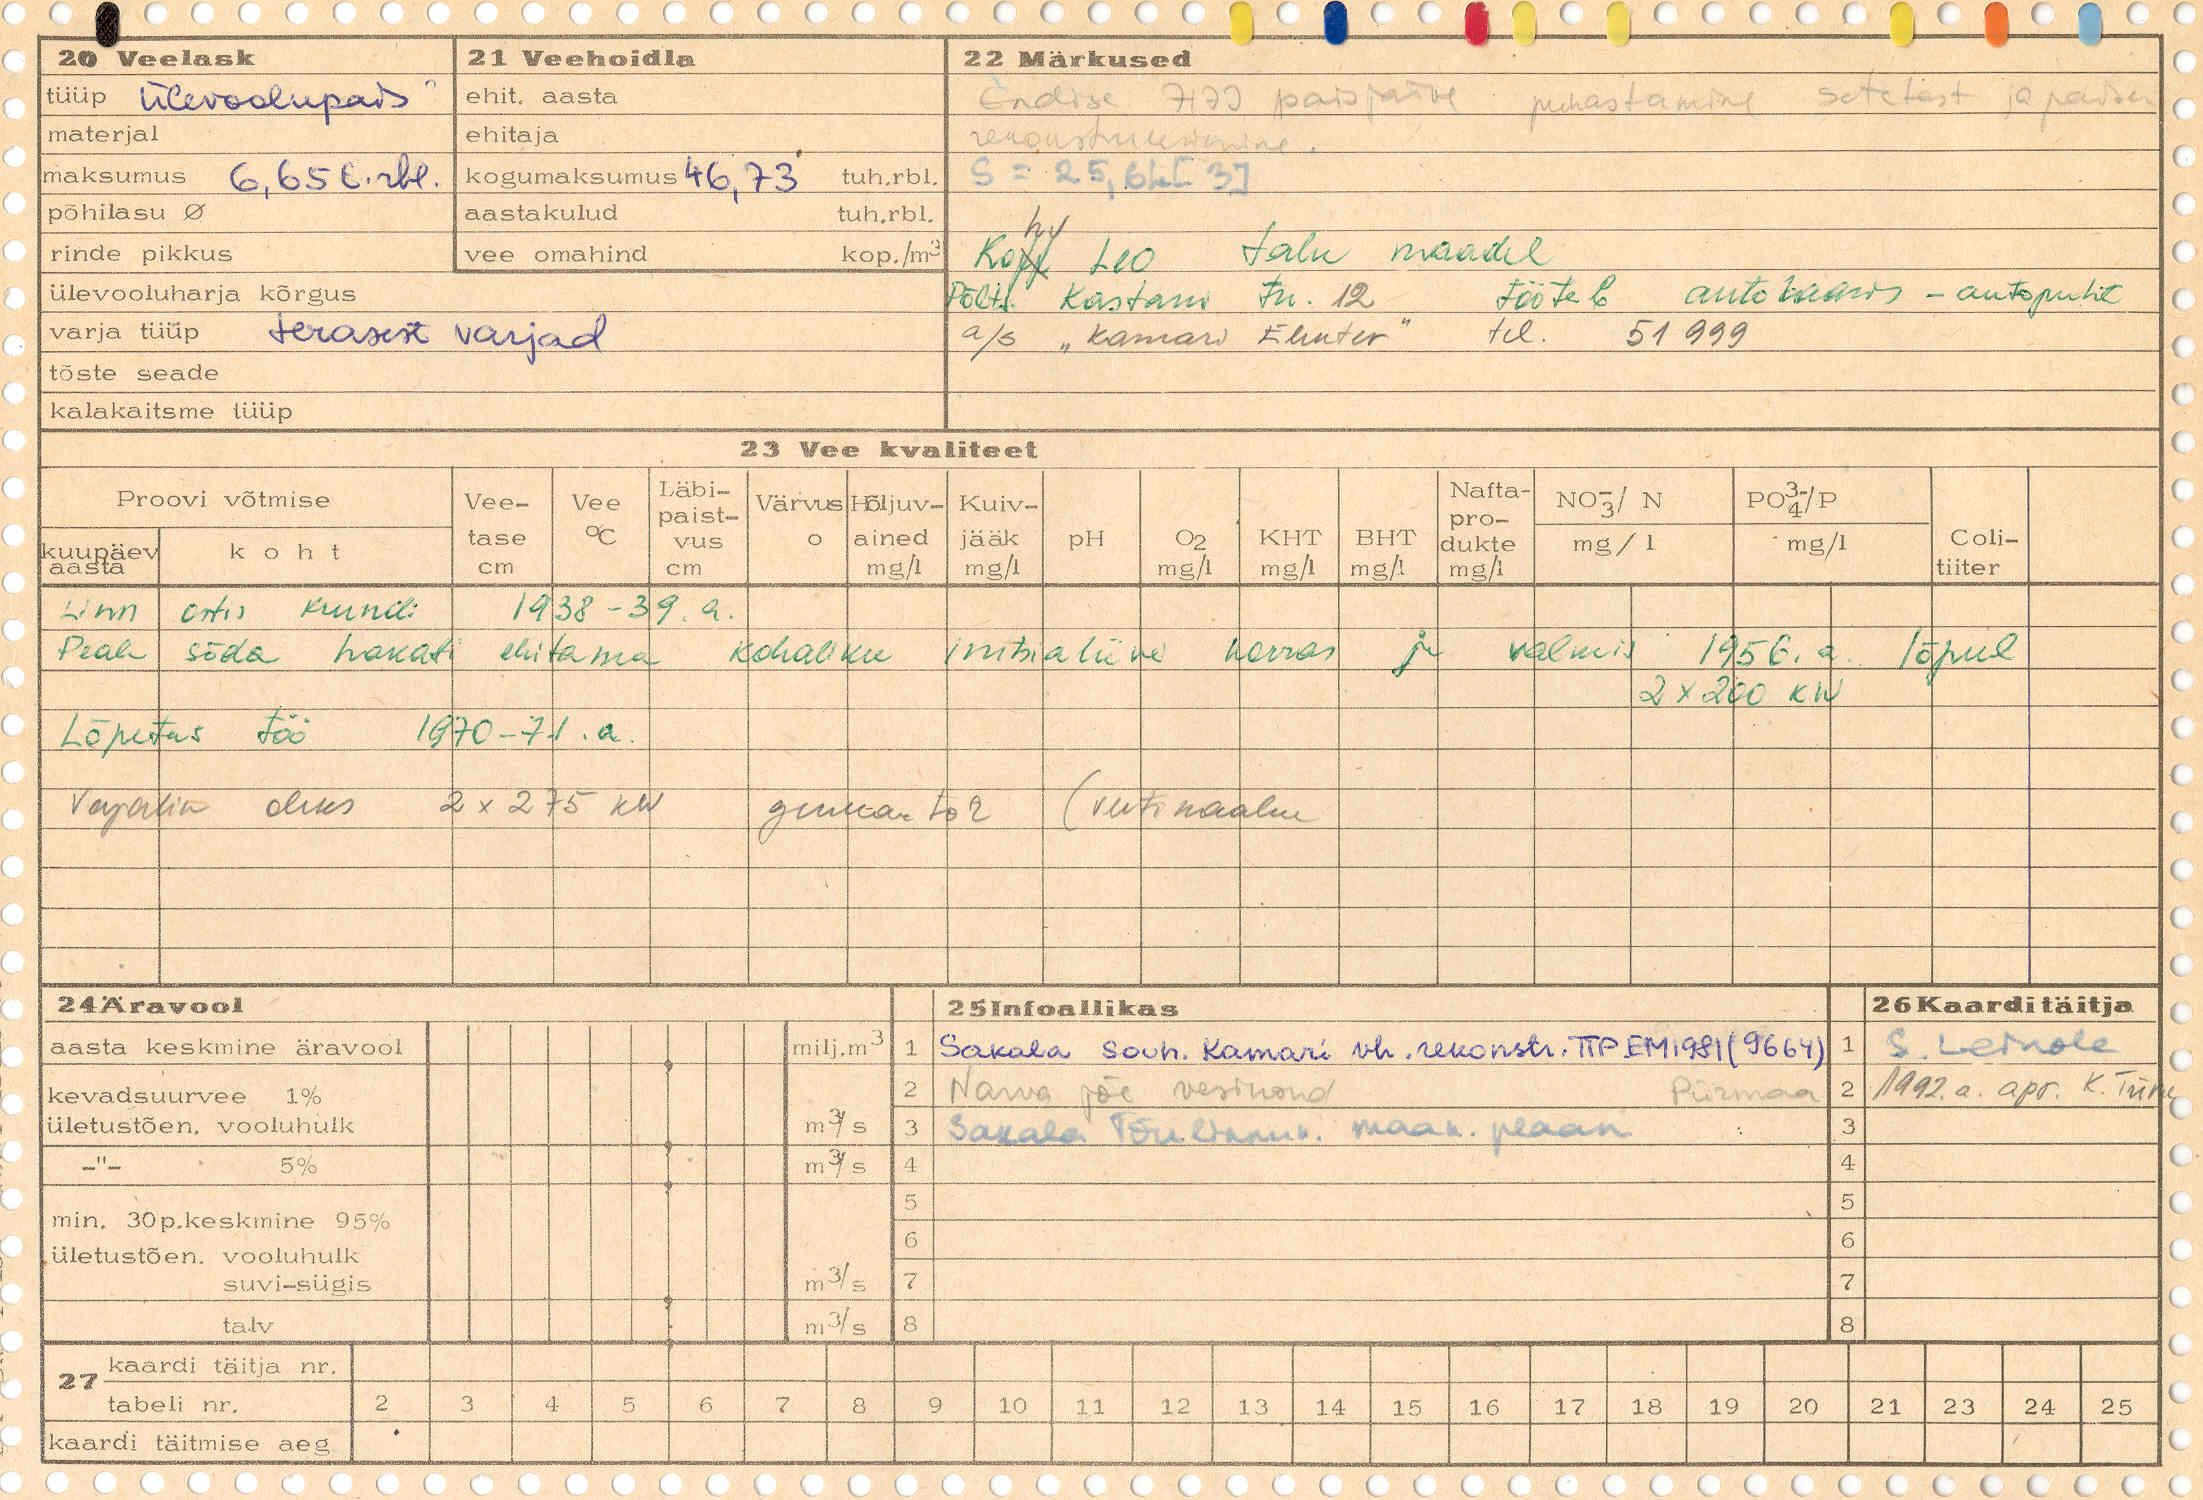 20 Veelask
tüüp Ülevoolupais
materjal
maksumus 6,65 t.rbl.
põhilasu Ø
rinde pikkus
ülevooluharja kõrgus
varja tüüp terasest varjad
tõste seade
kalakaitsme tüüp
21 Veehoidla
ehit. aasta
ehitaja
kogumaksumus 46,73 tuh.rbl.
aastakulud tuh.rbl.
vee omahind kop./m³
22 Märkused
Endise HEJ paisjärve puhastamine setetest ja paisu
rekonstrueerimine.
S = 25,6 [3]
Leo talu maadel
Põlts. Kastani tn. 12 töötab - autopuhit
a/s „Kamari Ehitus" tel. 51 999
23 Vee kvaliteet
Proovi võtmise
kuupäev aasta
koht
Vee-tase cm
Vee °C
Läbi-paist-vus cm
Värvus o
Hõljuv-ained mg/l
Kuiv-jääk mg/l
pH
O2 mg/l
KHT mg/l
BHT mg/l
Nafta-pro-dukte mg/l
NO3-/ N mg/l
PO4 3-/P mg/l
Coli-tiiter
Linn ostis krundi 1938-39.a.
Peale sõda hakati ehitama kohaliku initsiatiivi korras ja valmis 1956.a. lõpul
2 x 200 kW
Lõpetas töö 1970-71.a.
Vajalik oleks 2 x 275 kW (vertikaalne
24 Äravool
aasta keskmine äravool milj.m³
kevadsuurvee 1%
ületustõen. vooluhulk m³/s
-"- 5% m³/s
min. 30p.keskmine 95%
ületustõen. vooluhulk
suvi-sügis m³/s
talv m³/s
25 Infoallikas
1 Sakala sovh. Kamari vh. rekonstr. TTP EM1981 (9664)
2 Narva jõe vesikond Piirmaa
3 Sakala maak. plaan
4
5
6
7
8
26 Kaarditäitja
1 S. Leinole
2 1992.a. apr. K. Tiine
3
4
5
6
7
8
27 kaardi täitja nr.
tabeli nr. 2 3 4 5 6 7 8 9 10 11 12 13 14 15 16 17 18 19 20 21 23 24 25
kaardi täitmise aeg